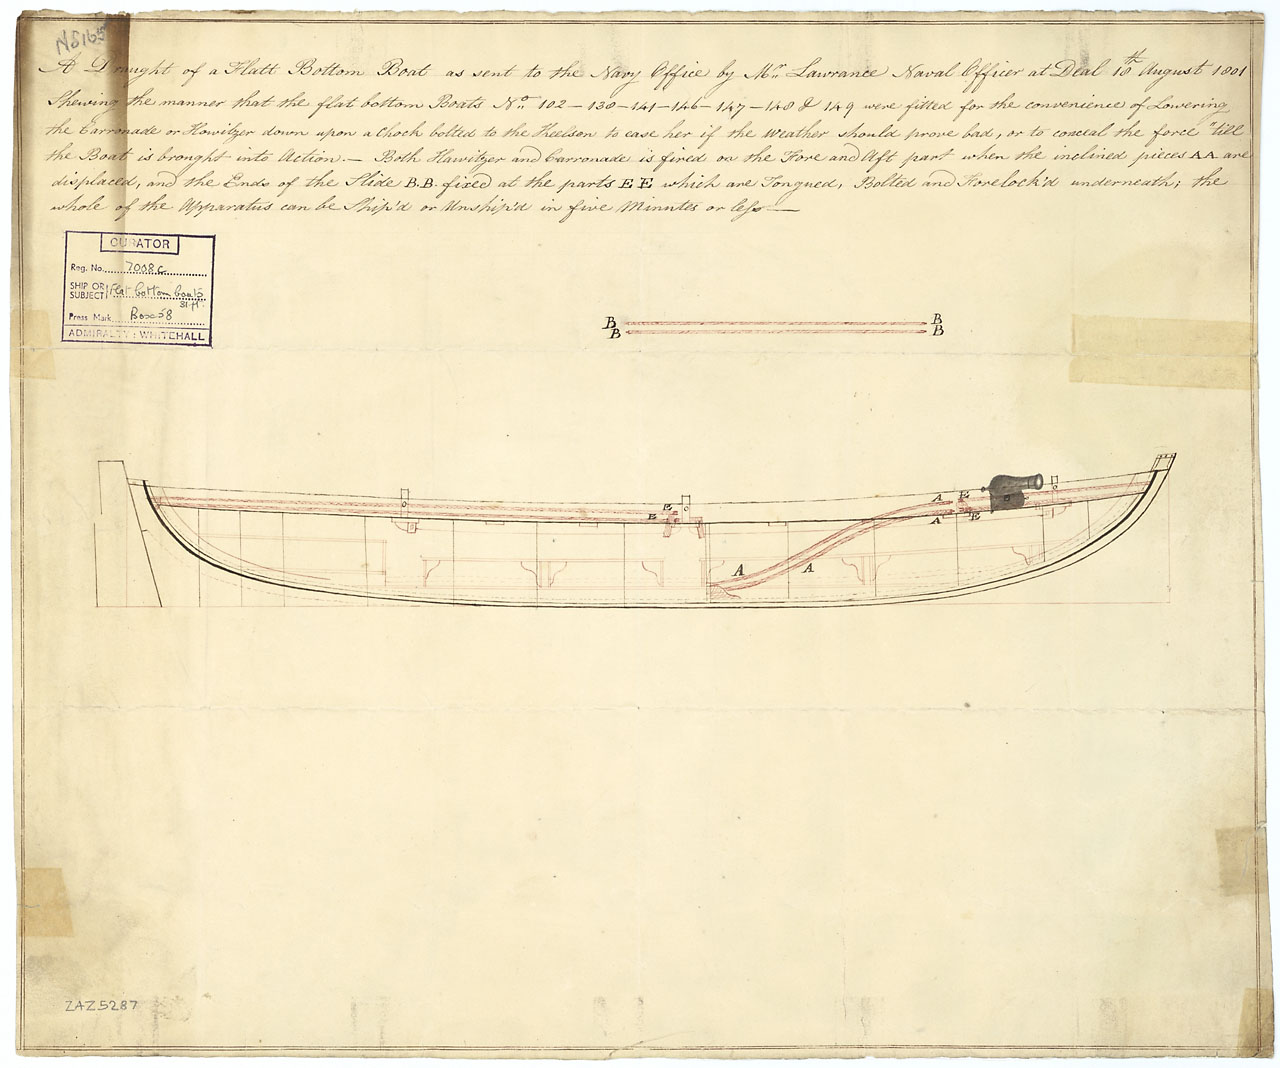 NS165
A Draught of a Flatt Bottom Boat as sent to the Navy Office by Mr. Lawrance Naval Officer at Deal 18th August 1801
Shewing the manner that the flat bottom Boats No. 102 - 138 - 141 - 146 - 147 - 148 & 149 were fitted for the convenience of Lowering
the Carronade or Howitzer down upon a Chock bolted to the Keelson to ease her if the Weather should prove bad, or to conceal the force 'till
the Boat is brought into Action. — Both Hawitzer and Carronade is fired on the Fore and Aft part when the inclined pieces AA are
displaced, and the Ends of the Slide B.B. fixed at the parts EE which are Tongued, Bolted and Forelock'd underneath; the
whole of the Apparatus can be Ship'd or Unship'd in five Minutes or less —
CURATOR
Reg. No. 7008c
SHIP OR SUBJECT Flat bottom boats
31 ft.
Press Mark Box 58
ADMIRALTY: WHITEHALL
B B
B B
A E
E
E
A E
A A
ZAZ5287